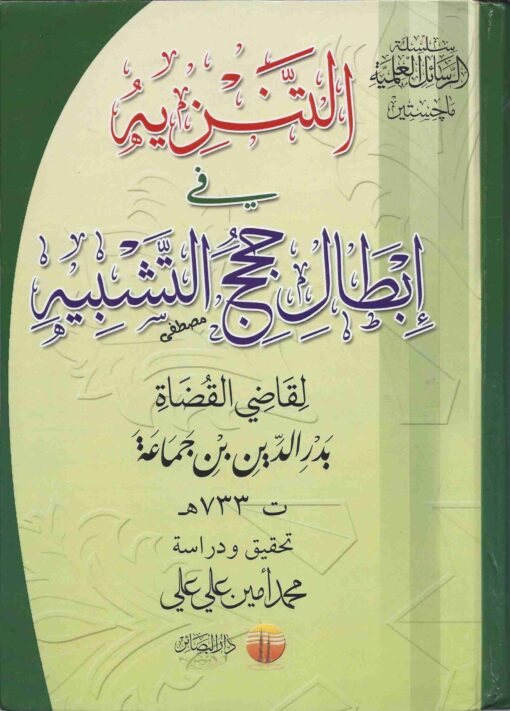 سلسلة
الرسائل العلمية
ماجستير
التَّنْزِيهُ
في
إِبْطَالِ حُجَجِ التَّشْبِيهِ
مصطفى
لِقَاضِي القُضَاةِ
بَدْرِ الدِّينِ بْنِ جَمَاعَةَ
ت ٧٣٣هـ
تحقيق ودراسة
محمد أمين علي علي
دار البصائر